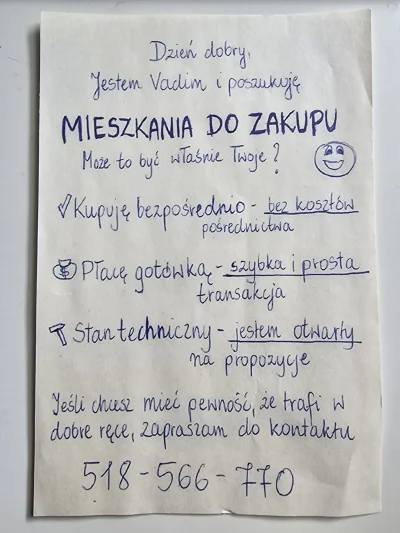 Dzień dobry,
Jestem Vadim i poszukuję
MIESZKANIA DO ZAKUPU
Może to być właśnie Twoje?
Kupuję bezpośrednio - bez kosztów
pośrednictwa
Płacę gotówką - szybka i prosta
transakcja
Stan techniczny - jestem otwarty
na propozycje
Jeśli chcesz mieć pewność, że trafi w
dobre ręce, zapraszam do kontaktu
518-566-770